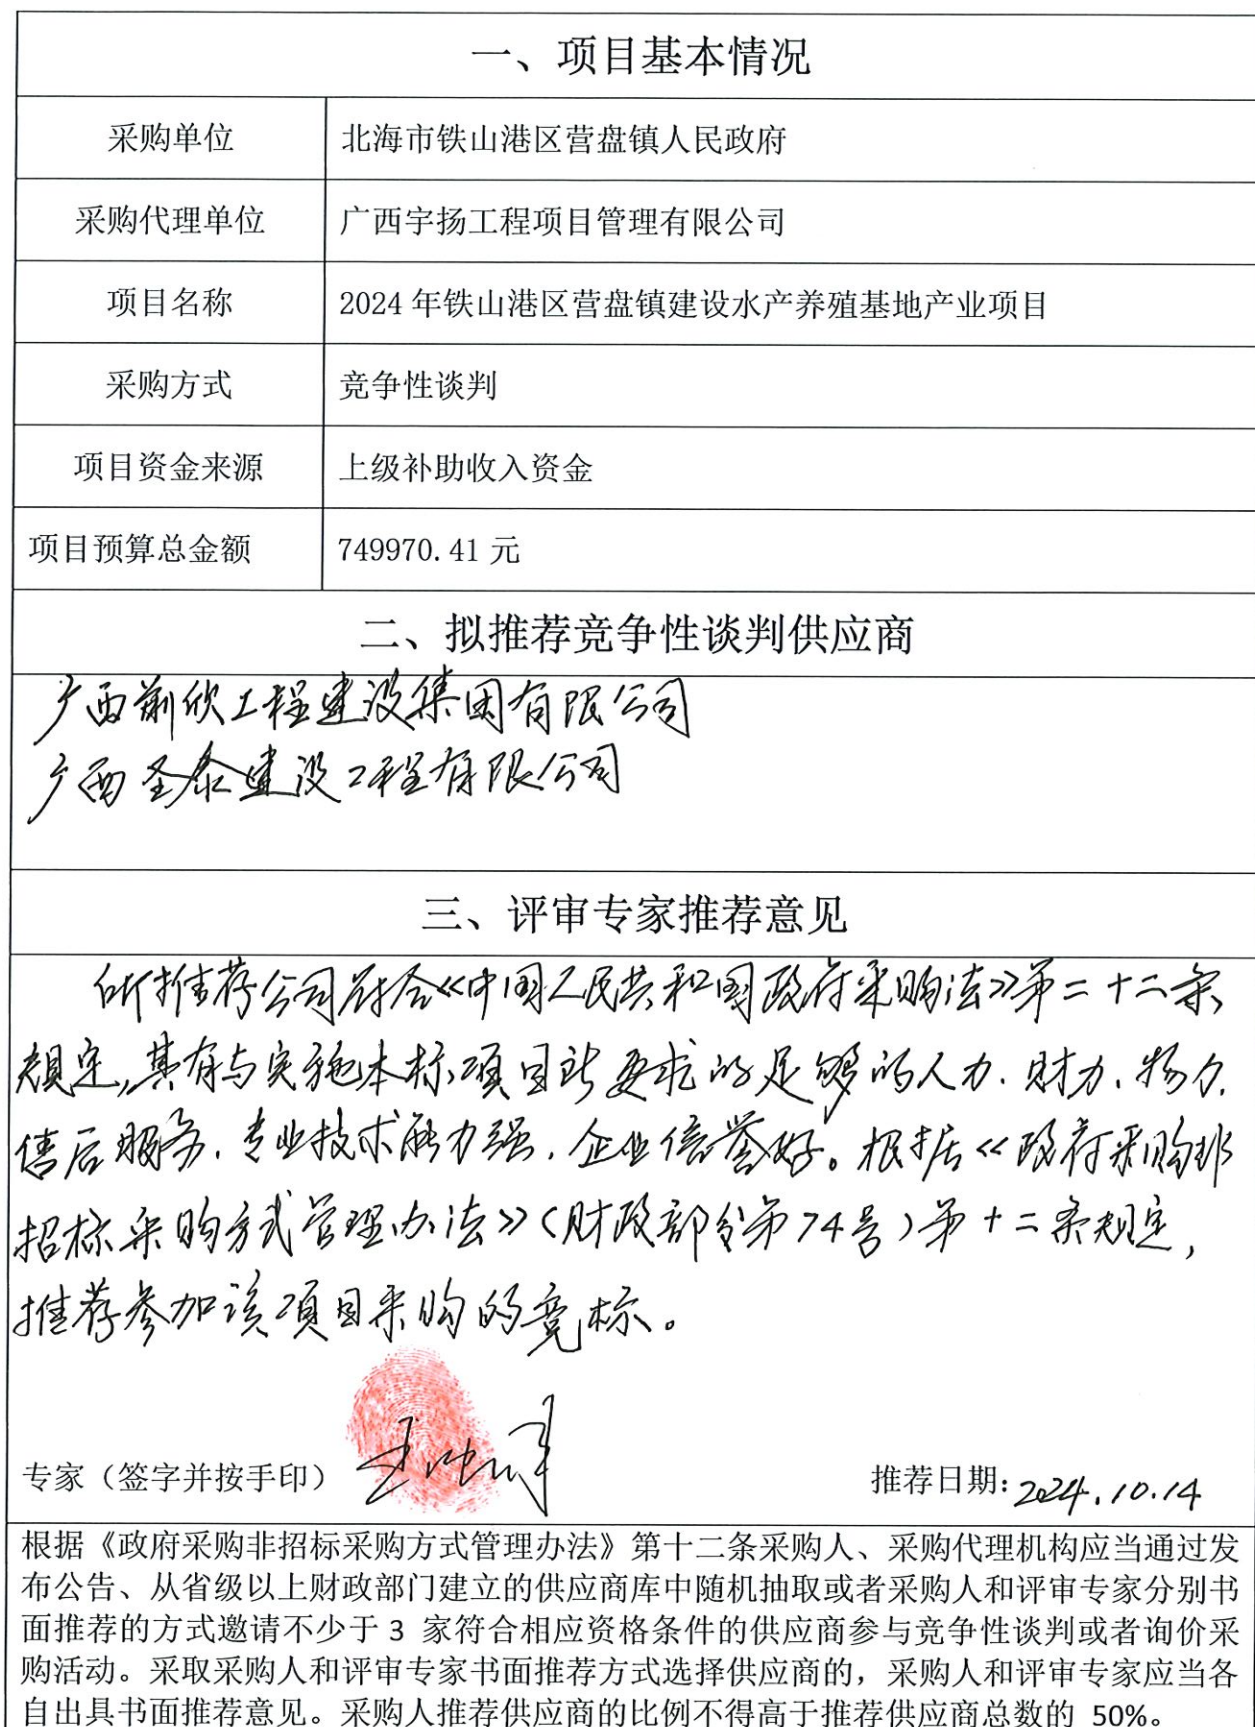 一、项目基本情况
采购单位 北海市铁山港区营盘镇人民政府
采购代理单位 广西宇扬工程项目管理有限公司
项目名称 2024年铁山港区营盘镇建设水产养殖基地产业项目
采购方式 竞争性谈判
项目资金来源 上级补助收入资金
项目预算总金额 749970.41元
二、拟推荐竞争性谈判供应商
广西欣工程建设集团有限公司
广西圣泰建设工程有限公司
三、评审专家推荐意见
所推荐公司符合《中国人民共和国政府采购法》第二十二条
规定,具有与实施本标项目所要求的足够的人力、财力、物力、
售后服务、专业技术能力强,企业信誉好。根据《政府采购非
招标采购方式管理办法》(财政部令第74号)第十二条规定,
推荐参加该项目采购的竞标。
专家（签字并按手印）
推荐日期：2024.10.14
根据《政府采购非招标采购方式管理办法》第十二条采购人、采购代理机构应当通过发
布公告、从省级以上财政部门建立的供应商库中随机抽取或者采购人和评审专家分别书
面推荐的方式邀请不少于 3 家符合相应资格条件的供应商参与竞争性谈判或者询价采
购活动。采取采购人和评审专家书面推荐方式选择供应商的，采购人和评审专家应当各
自出具书面推荐意见。采购人推荐供应商的比例不得高于推荐供应商总数的 50%。